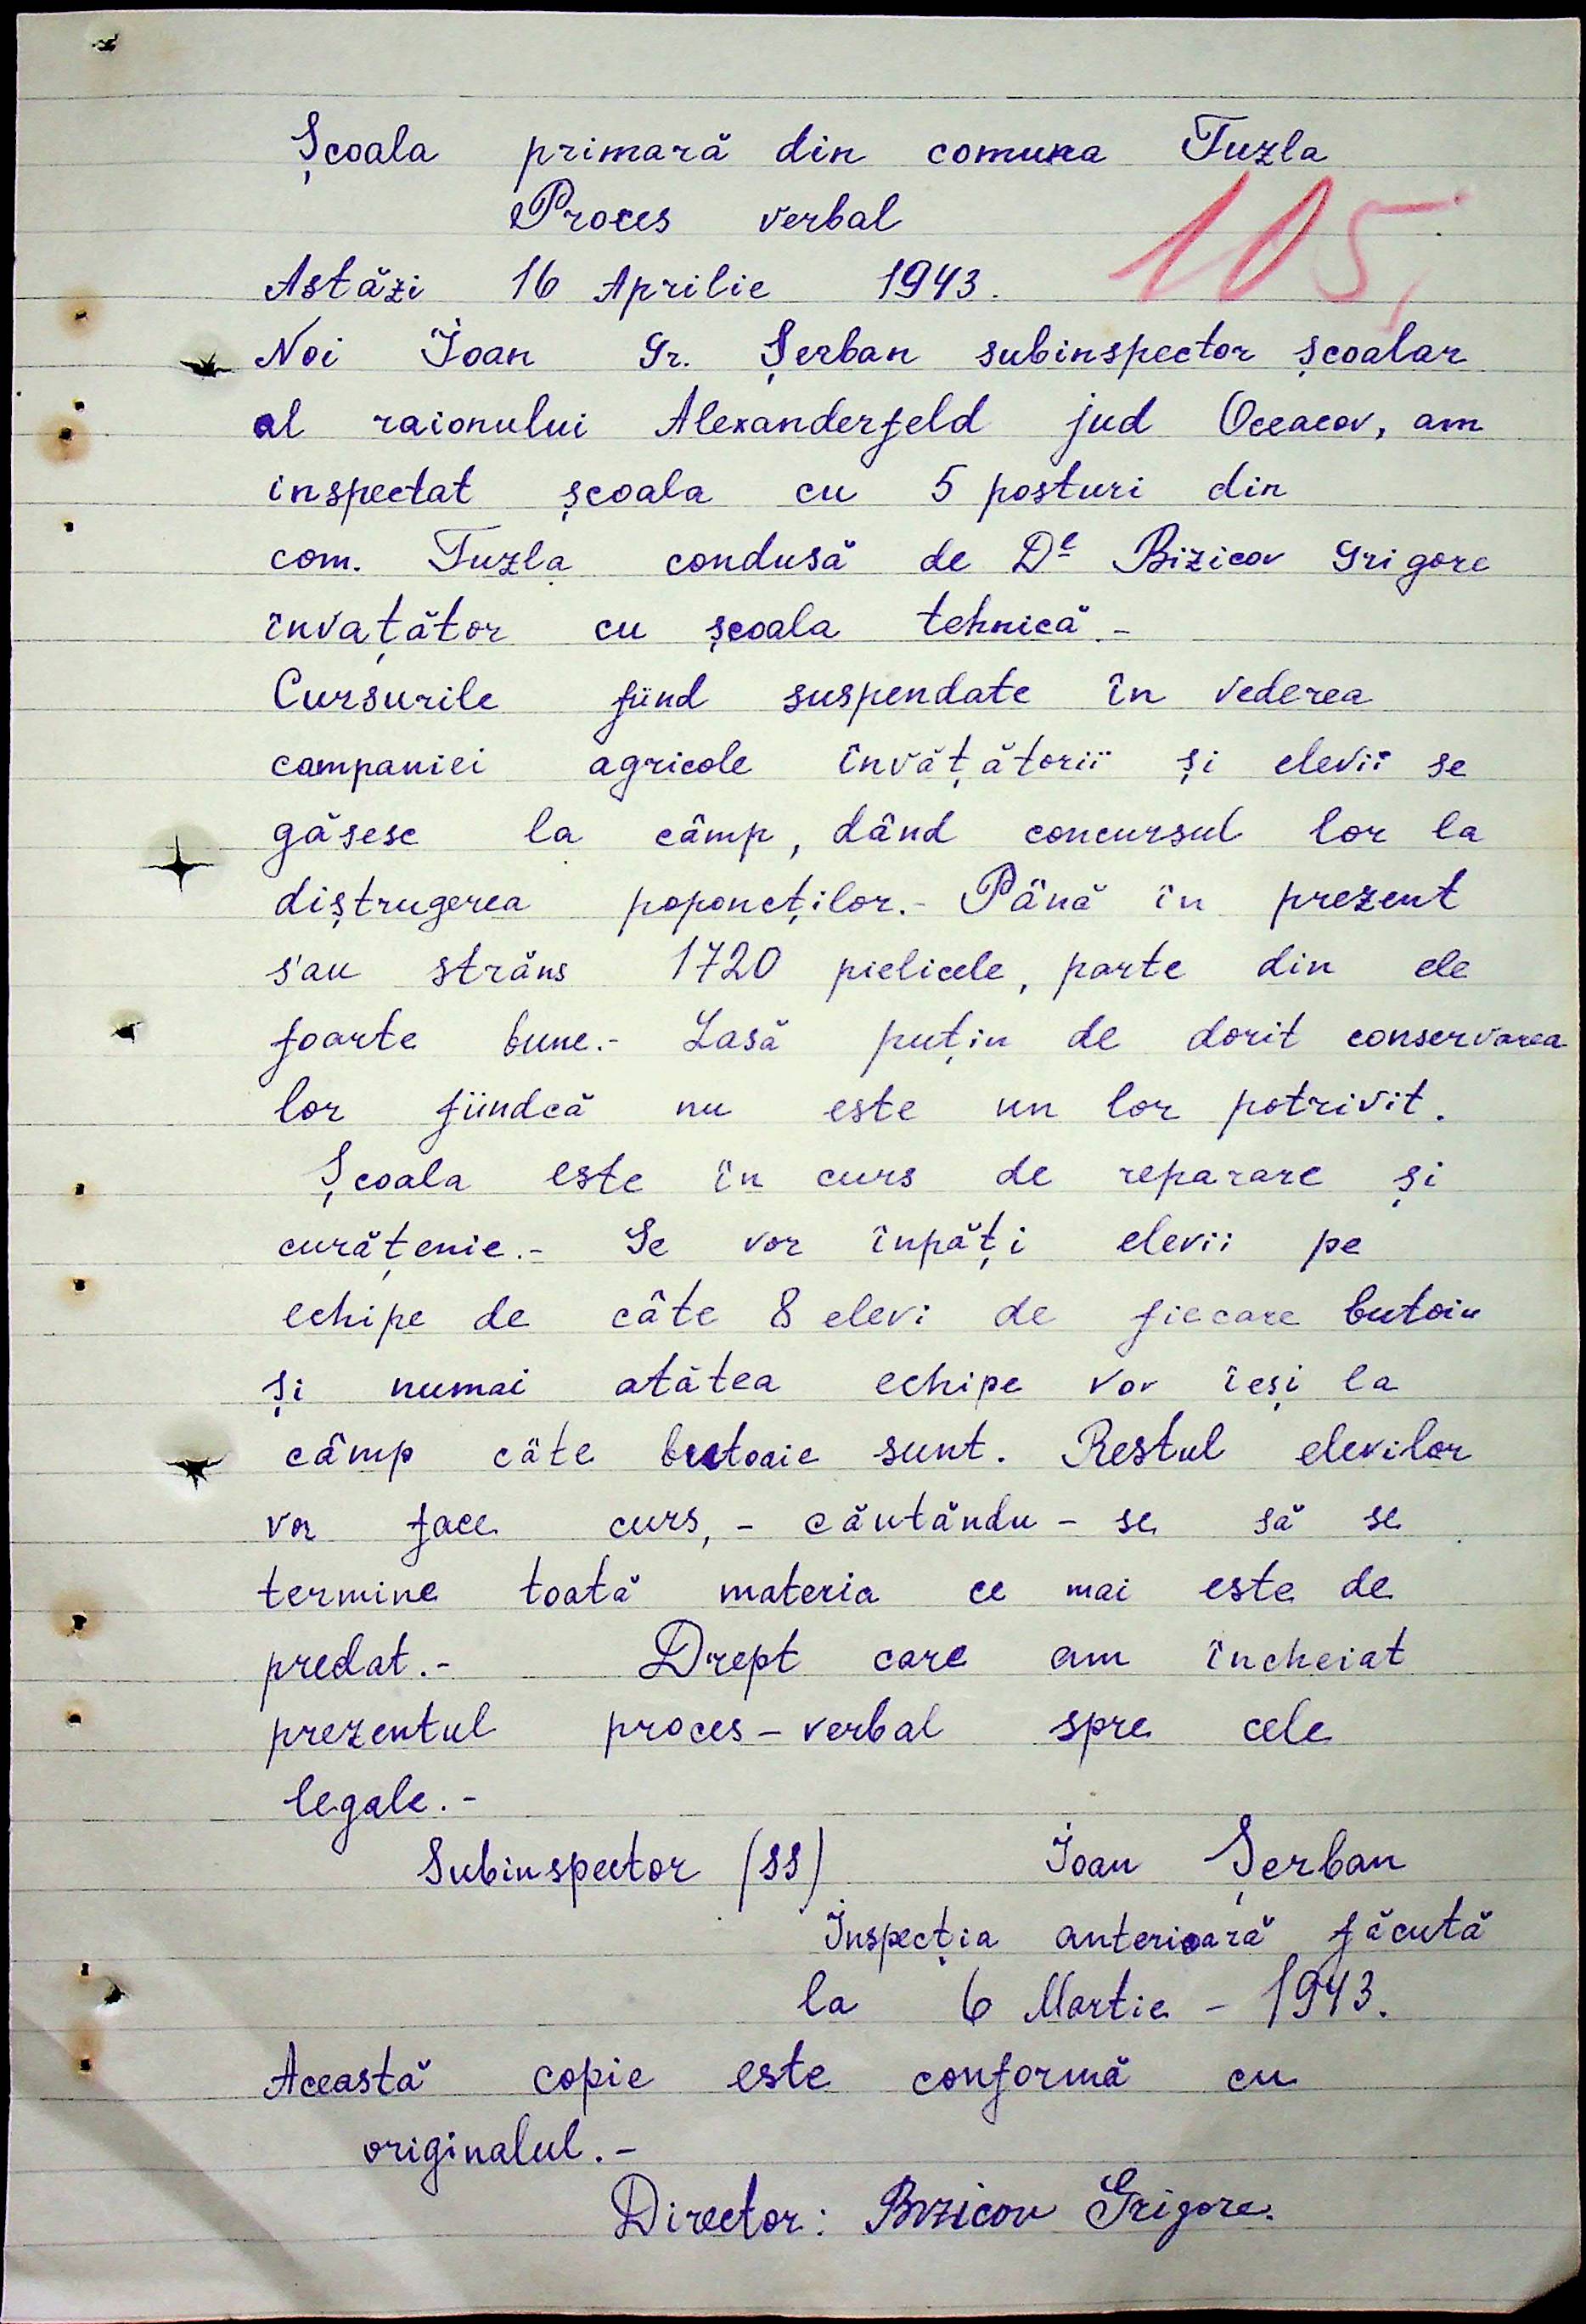 Școala primară din comuna Tuzla
Proces verbal
105,
Astăzi 16 Aprilie 1943.
Noi Ioan Gr. Șerban subinspector școalar
al raionului Alexanderfeld jud Oceacov, am
inspectat școala cu 5 posturi din
com. Tuzla condusă de Dl Bizicov Grigore
învațător cu școala tehnică.-
Cursurile fiind suspendate în vederea
campaniei agricole învățătorii și elevii se
găsesc la câmp, dând concursul lor la
diștrugerea poponcților.- Până în prezent
s'au străns 1720 pielicele, parte din ele
foarte bune.- Lasă puțin de dorit conservarea
lor fiindcă nu este un lor potrivit.
Școala este în curs de reparare și
curățenie.- Se vor înpăți elevii pe
echipe de câte 8 elevi de fiecare butoiu
și numai atâtea echipe vor ieși la
câmp câte butoaie sunt. Restul elevilor
vor face curs, - căutăndu-se să se
termine toată materia ce mai este de
predat.- Drept care am încheiat
prezentul proces-verbal spre cele
legale.-
Subinspector (ss) Ioan Șerban
Inspecția anterioară făcută
la 6 Martie - 1943.
Această copie este conformă cu
originalul.-
Director: Bizicov Grigore.